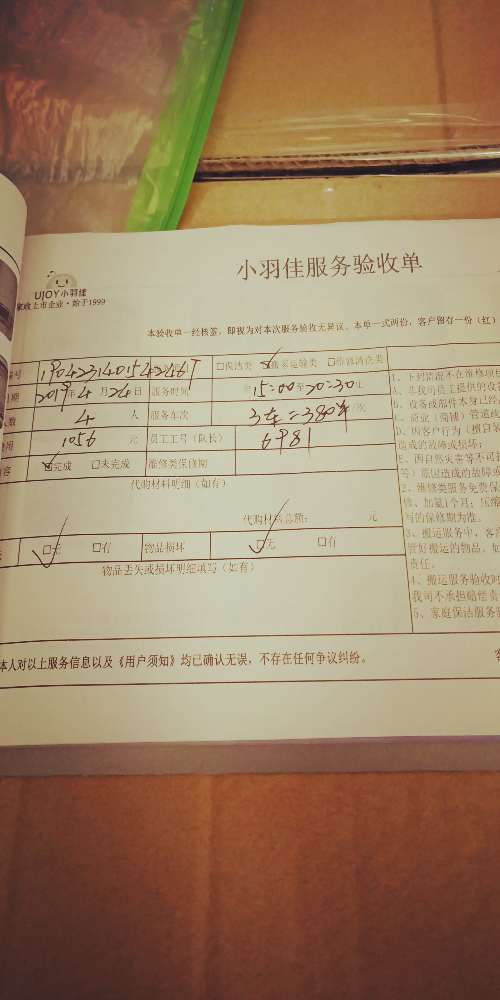 小羽佳服务验收单
UJOY小羽佳
家政上市企业·始于1999
本验收单一经核签，即视为对本次服务验收无异议。本单一式两份，客户留存一份（红）
号 □保洁类 搬家运输类 □维修清洗类
期 2019年4月24日 服务时间 15:00至20:30止
数 4 人 服务车次
费用 1056 元 员工工号（队长） 6981
内容 完成 □未完成 维修类保修期
代购材料明细（如有）
代购材料总额： 元
□无 □有 物品损坏 □无 □有
物品丢失或损坏明细填写（如有）
本人对以上服务信息以及《用户须知》均已确认无误，不存在任何争议纠纷。
1、下列情况不在维修保
A、非我司员工提供的
B、设备或部件本身已经
D、因客户行为（擅自
造成的故障或损坏；
E、因自然灾害等不可
等）原因造成的故障或
2、维修类服务免费保
修，加氟1个月；压缩
写的保修期为准。
3、搬运服务中，客
管好搬运的物品。如
责任。
4、搬运服务验收时
我司不承担赔偿责
5、家庭保洁服务